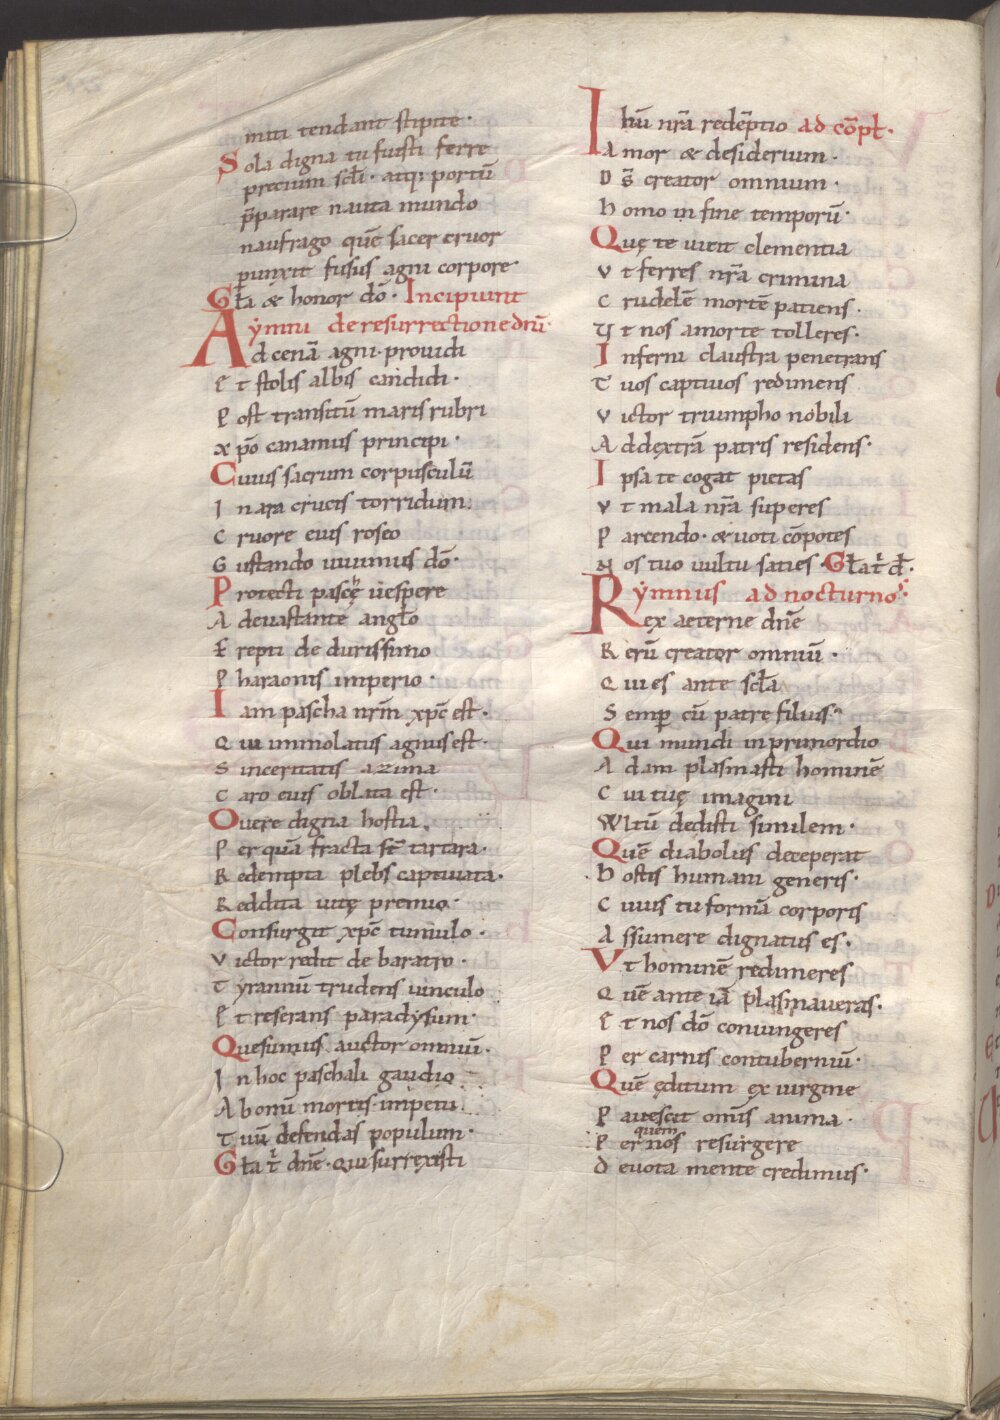 miti tendant stipite·
Sola digna tu fuisti ferre
precium scli· atq; portū
p̄parare nauta mundo
naufrago quē sacer cruor
punxit fusus agni corpore·
Gła & honor dō· Incipiunt
ẏmni de resurrectione dn̄i·
Ad cenā agni· prouidi
Et stolis albis candidi·
Post transitū maris rubri
xp̄o canamus principi·
Cuius sacrum corpusculū
In ara crucis torridum·
Cruore eius roseo
Gustando uiuimus dō·
Protecti paschę uespere
A deuastante angło
Erepti de durissimo
Pharaonis imperio·
Iam pascha nr̄m xp̄c est·
Qui immolatus agnus est·
Sinceritatis azima
Caro eius oblata est·
O uere digna hostia·
Per quā fracta st̄ tartara·
Redempta plebs captiuata·
Reddita uitę premio·
Consurgit xp̄c tumulo·
Victor redit de baratro·
Tẏrannū trudens uinculo
Et reserans paradẏsum·
Quesumus auctor omniū·
In hoc paschali gaudio
Ab omī mortis impetu
Tuū defendas populum·
Gła t̄ dn̄e· qui surrexisti
Ihū nr̄a redēptio ad cōpł·
Amor & desiderium·
Ds̄ creator omnium·
Homo in fine temporū·
Quę te uicit clementia
Vt ferres nr̄a crimina
Crudelē mortē patiens·
Vt nos a morte tolleres·
Inferni claustra penetrans
Tuos captiuos redimens
Victor triumpho nobili
Ad dextrā patris residens·
Ipsa te cogat pietas
Vt mala nr̄a superes
Parcendo· & uoti cōpotes
Nos tuo uultu saties· Gła t̄ d̄·
ẏmnus ad nocturnos·
Rex aeterne dn̄e
Rerū creator omniū·
Qui es ante scła
Semp cū patre filius·
Qui mundi in primordio
Adam plasmasti hominē
Cui tuę imagini
Vultū dedisti similem·
Quē diabolus deceperat
Hostis humani generis·
Cuius tu formā corporis
Assumere dignatus es·
Vt hominē redimeres
Quē ante iā plasmaueras·
Et nos dō coniungeres
Per carnis contuberniū·
Quē ęditum ex uirgine
Pauescit omīs anima·
quem
Per nos resurgere
deuota mente credimus·